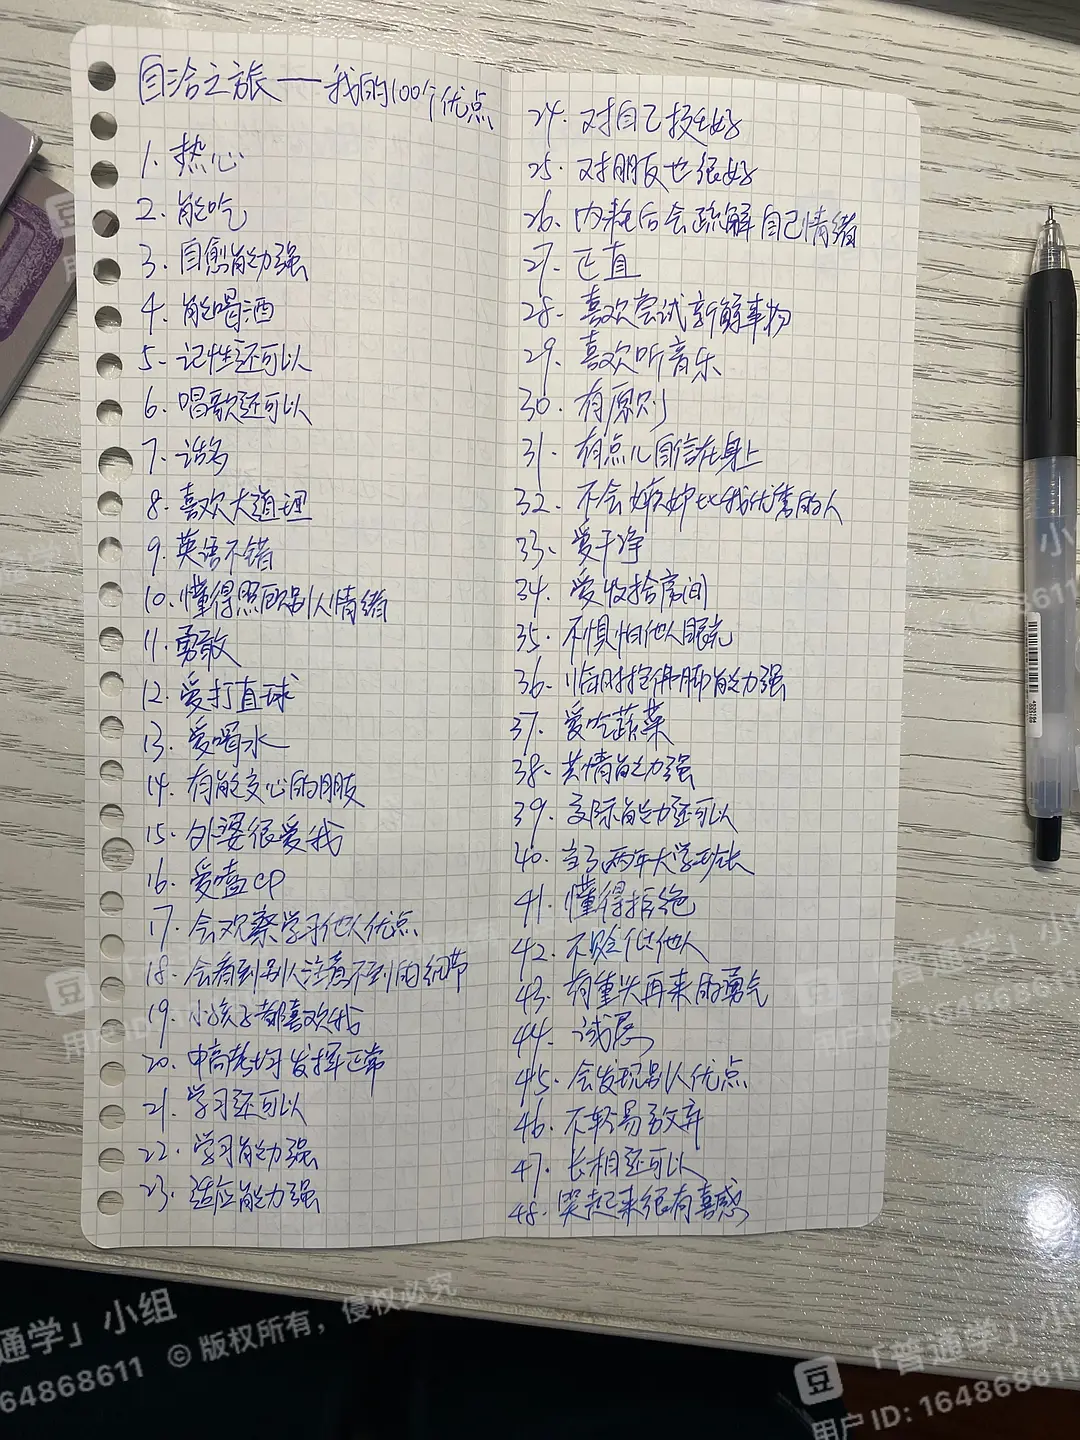 自洽之旅——我的100个优点
1. 热心
2. 能吃
3. 自愈能力强
4. 能喝酒
5. 记性还可以
6. 唱歌还可以
7. 话多
8. 喜欢大道理
9. 英语不错
10. 懂得照顾别人情绪
11. 勇敢
12. 爱打直球
13. 爱喝水
14. 有能交心的朋友
15. 外婆很爱我
16. 爱嗑cp
17. 会观察学习他人优点
18. 会看到别人注意不到的细节
19. 小孩子都喜欢我
20. 中高考均发挥正常
21. 学习还可以
22. 学习能力强
23. 适应能力强
24. 对自己挺好
25. 对朋友也很好
26. 内耗后会疏解自己情绪
27. 正直
28. 喜欢尝试新鲜事物
29. 喜欢听音乐
30. 有原则
31. 有点儿自信在身上
32. 不会嫉妒比我优秀的人
33. 爱干净
34. 爱收拾房间
35. 不惧怕他人眼光
36. 临时抱佛脚能力强
37. 爱吃蔬菜
38. 共情能力强
39. 交际能力还可以
40. 当了两年大学班长
41. 懂得拒绝
42. 不贬低他人
43. 有重头再来的勇气
44. 诚恳
45. 会发现别人优点
46. 不轻易放弃
47. 长相还可以
48. 哭起来很有喜感
通学」小组
164868611 © 版权所有，侵权必究
豆 「普通学」小
用户 ID: 164868611